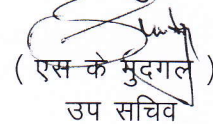 ( एस के मुदगल )
उप सचिव